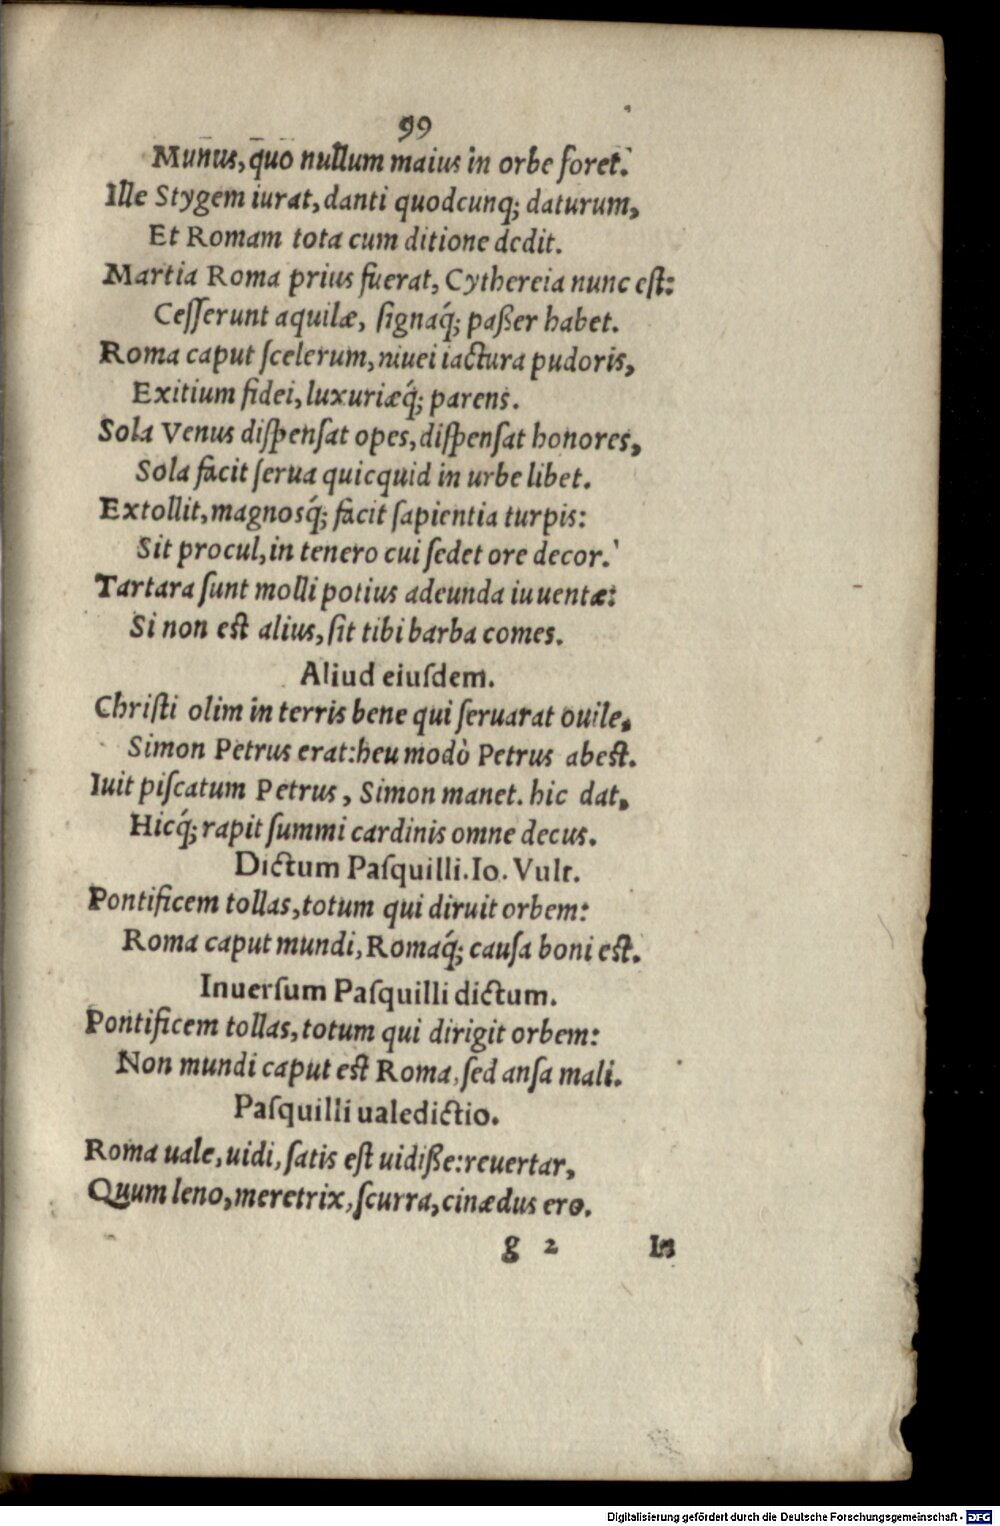 99
Munus, quo nullum maius in orbe foret.
Ille Stygem iurat, danti quodcunq; daturum,
Et Romam tota cum ditione dedit.
Martia Roma prius fuerat, Cythereia nunc eſt:
Ceſſerunt aquilæ, ſignaq́; paßer habet.
Roma caput ſcelerum, niuei iactura pudoris,
Exitium fidei, luxuriæq́; parens.
Sola Venus diſpenſat opes, diſpenſat honores,
Sola facit ſerua quicquid in urbe libet.
Extollit, magnosq́; facit ſapientia turpis:
Sit procul, in tenero cui ſedet ore decor.
Tartara ſunt molli potius adeunda iuuentæ:
Si non eſt alius, ſit tibi barba comes.
Aliud eiuſdem.
Chriſti olim in terris bene qui ſeruarat ouile,
Simon Petrus erat: heu modò Petrus abeſt.
Iuit piſcatum Petrus, Simon manet. hic dat,
Hicq́; rapit ſummi cardinis omne decus.
Dictum Paſquilli. Io. Vult.
Pontificem tollas, totum qui diruit orbem:
Roma caput mundi, Romaq́; cauſa boni eſt.
Inuerſum Paſquilli dictum.
Pontificem tollas, totum qui dirigit orbem:
Non mundi caput eſt Roma, ſed anſa mali.
Paſquilli ualedictio.
Roma uale, uidi, ſatis eſt uidiße: reuertar,
Quum leno, meretrix, ſcurra, cinædus ero.
g 2 In
Digitalisierung gefördert durch die Deutsche Forschungsgemeinschaft - DFG